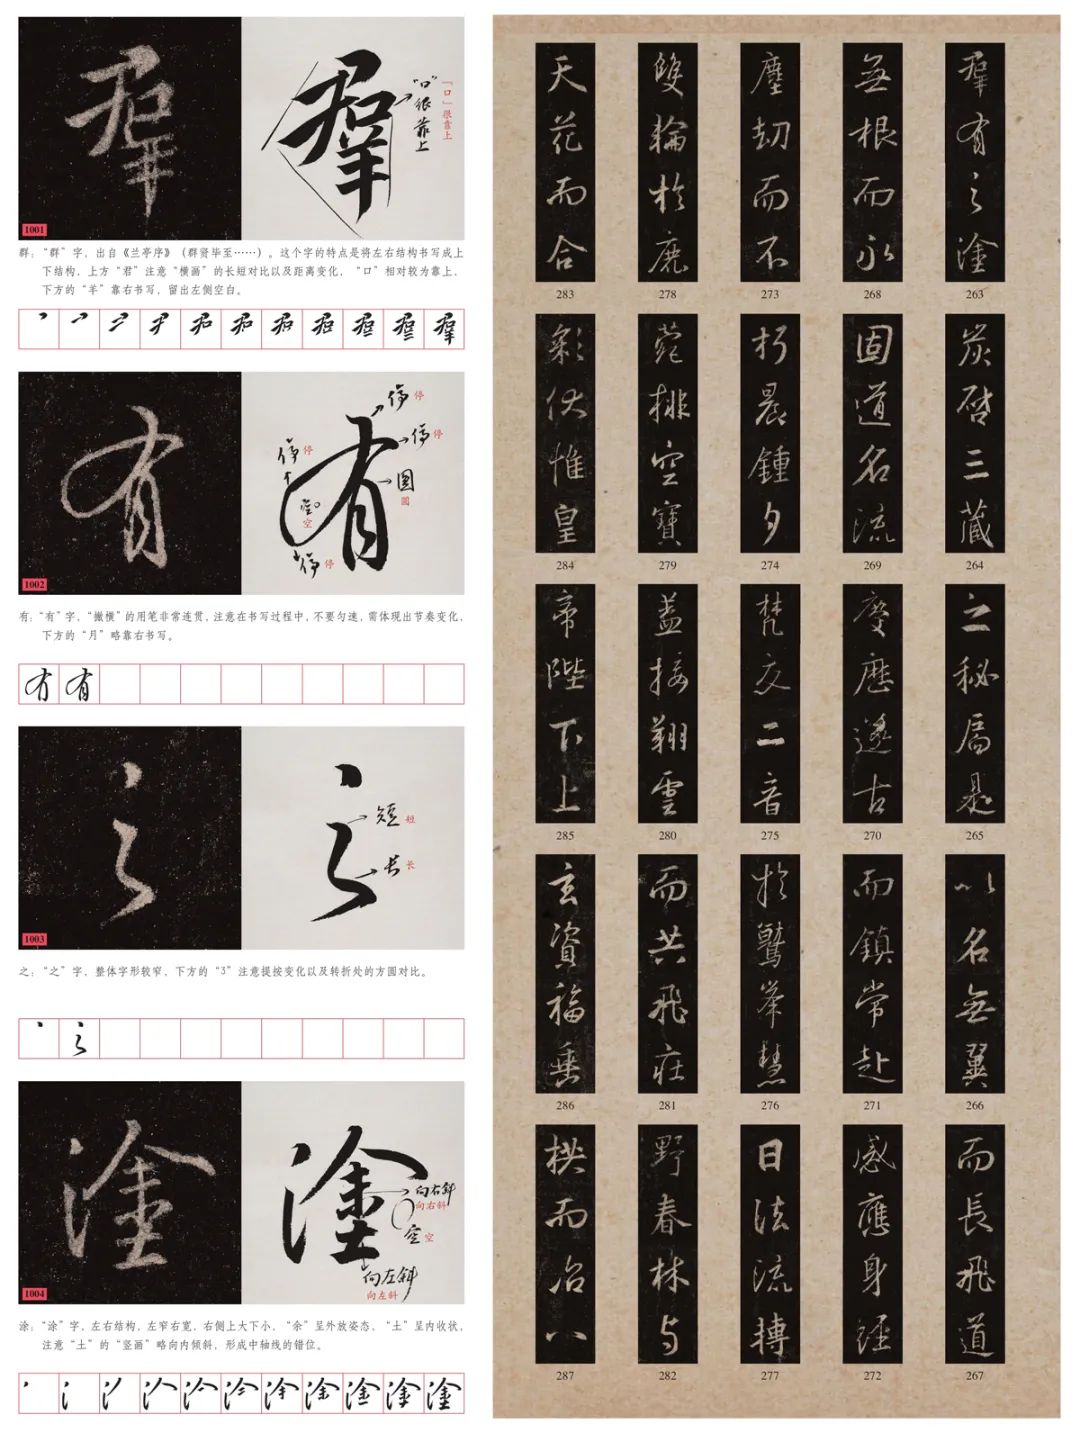 羣
羣
“口”很靠上
「口」很靠上
1001
群：“群”字，出自《兰亭序》（群贤毕至……）。这个字的特点是将左右结构书写成上
下结构，上方“君”注意“横画”的长短对比以及距离变化，“口”相对较为靠上，
下方的“羊”靠右书写，留出左侧空白。
有
有
停 停
停 停
停 停
圆
圓
空
空
停 停
1002
有：“有”字，“撇横”的用笔非常连贯，注意在书写过程中，不要匀速，需体现出节奏变化，
下方的“月”略靠右书写。
有
之
之
短 短
长 长
1003
之：“之”字，整体字形较窄，下方的“3”注意提按变化以及转折处的方圆对比。
之
塗
塗
向右斜
向右斜
空 空
向左斜
向左斜
1004
涂：“涂”字，左右结构，左窄右宽，右侧上大下小，“余”呈外放姿态，“土”呈内收状，
注意“土”的“竖画”略向内倾斜，形成中轴线的错位。
塗
羣有之塗
263
炭啓三藏
264
之秘扃是
265
以名無翼
266
而長飛道
267
無根而永
268
固道名流
269
慶歷遂古
270
而鎮常赴
271
感應身經
272
塵劫而不
273
朽晨鍾夕
274
梵交二音
275
於鷲峯慧
276
日法流轉
277
雙輪於鹿
278
菀排空寶
279
蓋接翔雲
280
而共飛莊
281
野春林與
282
天花而合
283
彩伏惟皇
284
帝陛下上
285
玄資福垂
286
拱而治八
287